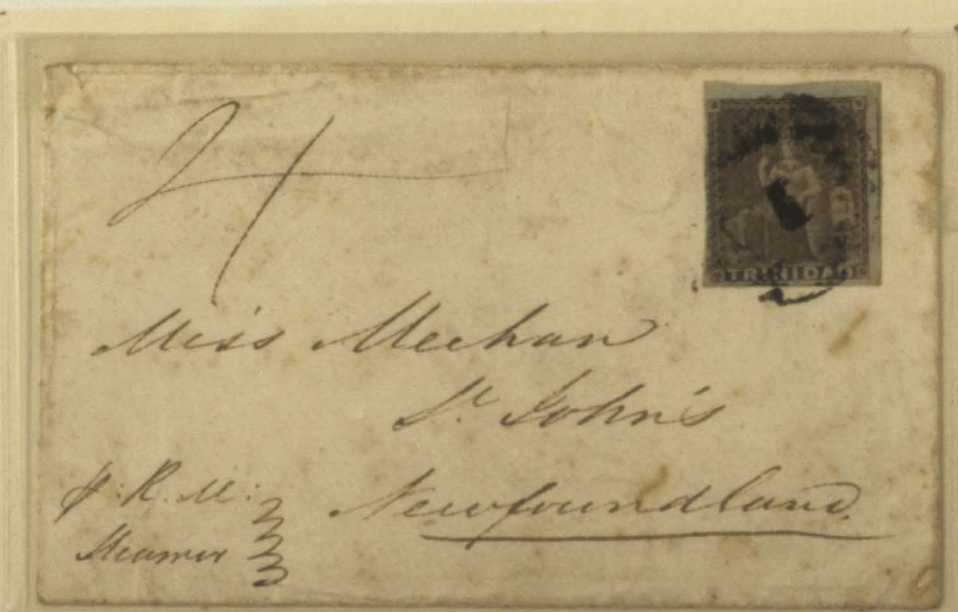 4
TRINIDAD
Miss Meehan
St. John's
Newfoundland
p: R. M:
Steamer